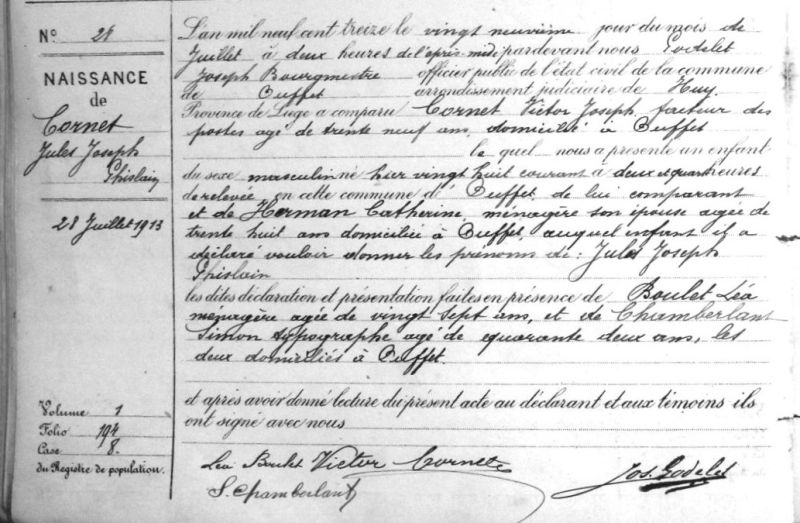 N° 28
NAISSANCE
de
Cornet
Jules Joseph
Ghislain
28 Juillet 1913
Volume 1
Folio 194
Case 8.
du Registre de population.
L'an mil neuf cent treize le vingt neuvième jour du mois de
Juillet à deux heures de l'après-midi pardevant nous Godelet
Joseph Bourgmestre officier public de l'état civil de la commune
de Ouffet arrondissement judiciaire de Huy,
Province de Liège a comparu Cornet Victor Joseph, facteur des
postes agé de trente neuf ans, domicilié à Ouffet
le quel nous a présenté un enfant
du sexe masculin né hier vingt huit courant à deux et quart heures
de relevée en cette commune d'Ouffet, de lui comparant
et de Herman Catherine, ménagère son épouse agée de
trente huit ans domiciliée à Ouffet, auquel enfant il a
déclaré vouloir donner les prénoms de: Jules Joseph
Ghislain
les dites déclaration et présentation faites en présence de Boulet Léa
ménagère agée de vingt sept ans, et de Chamberlant
Simon typographe agé de quarante deux ans, les
deux domiciliés à Ouffet.
et après avoir donné lecture du présent acte au déclarant et aux témoins ils
ont signé avec nous
Léa Boulet Victor Cornet
S. Chamberlant
Jos. Godelet